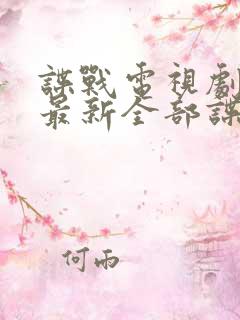 諜戰電視劇
最新全部諜
何雨